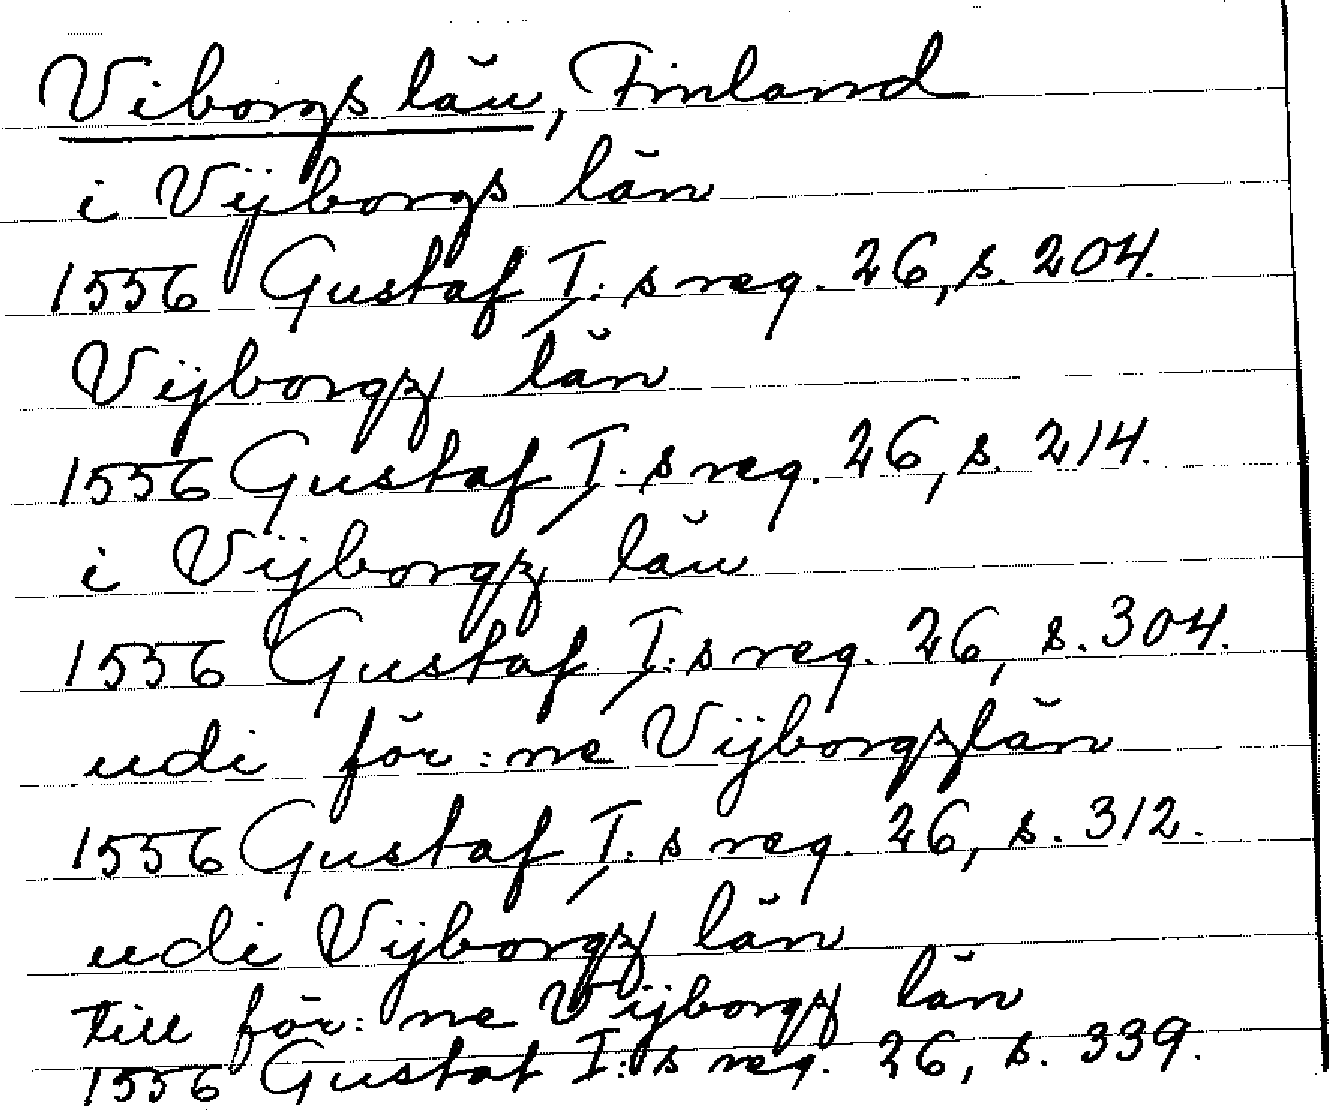 Viborgs län, Finland
i Vijborgs län
1556 Gustaf I:s reg. 26, s. 204.
Vijborgz län
1556 Gustaf I:s reg. 26, s. 214.
i Vijborgz län
1556 Gustaf I:s reg. 26, s. 304.
udi för:ne Vijborgzlän
1556 Gustaf I:s reg. 26, s. 312.
udi Vijborgz län
till för:ne Vijborgz län
1556 Gustaf I:s reg. 26, s. 339.